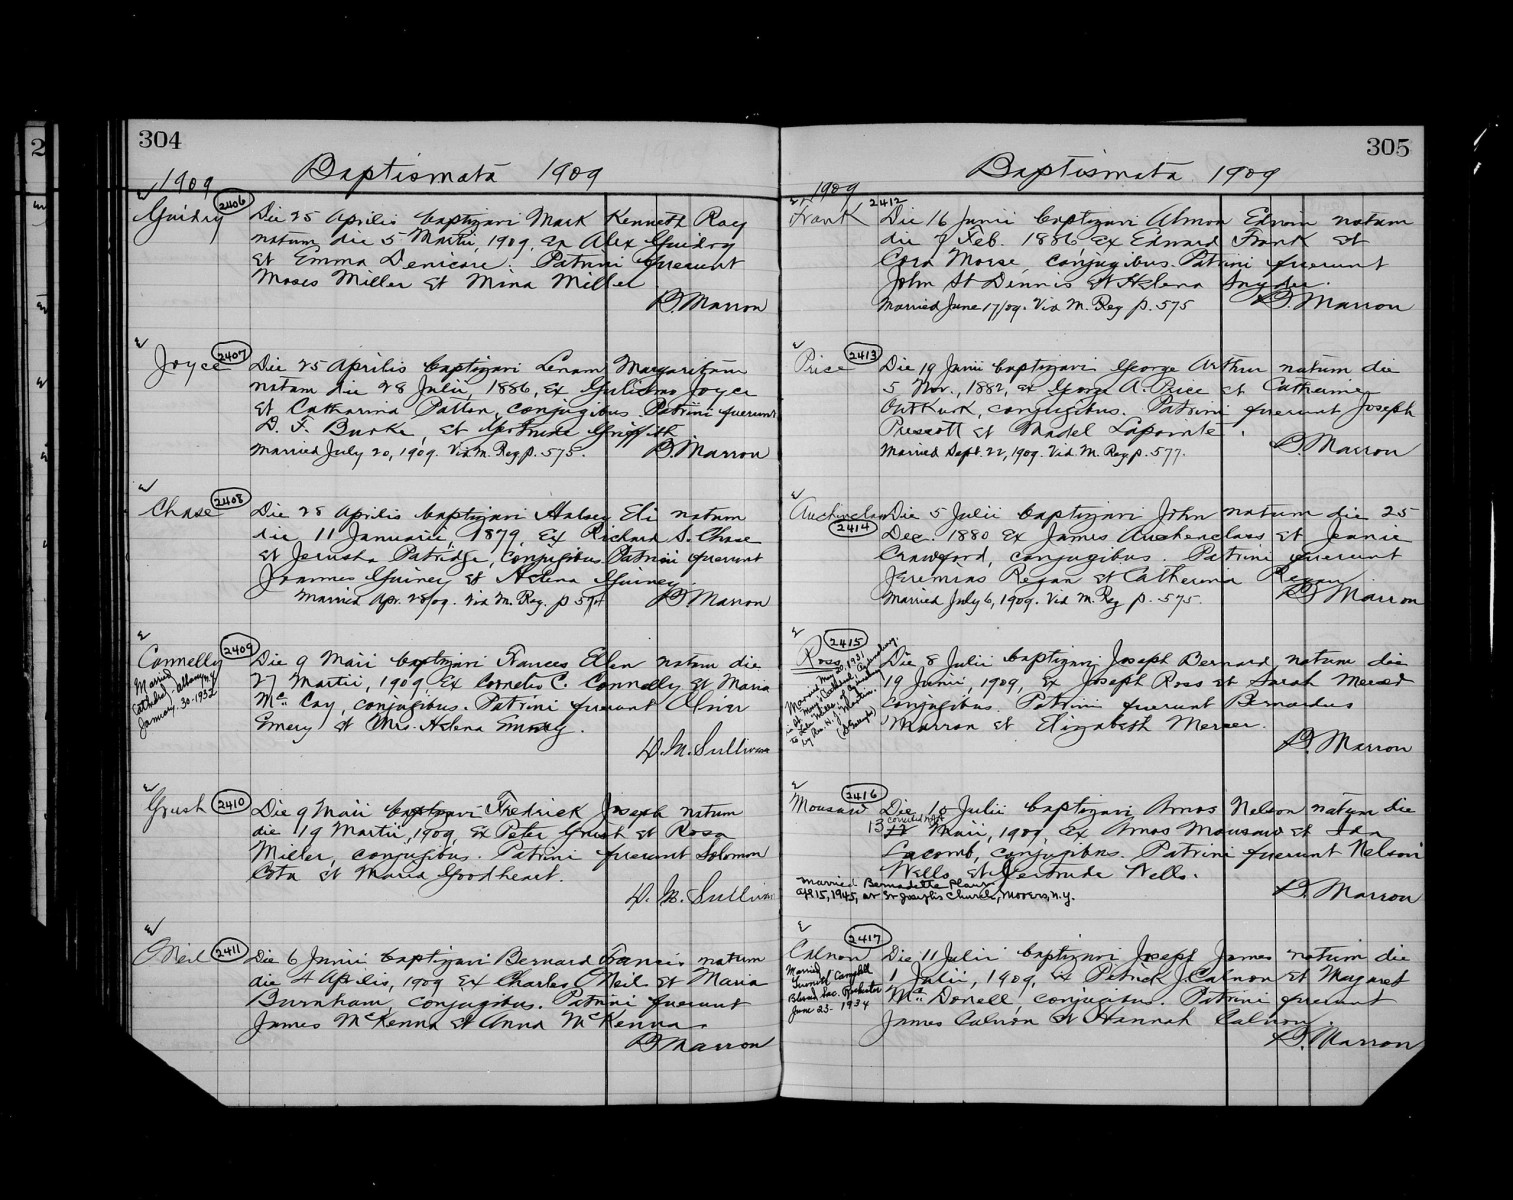 304
Baptismata 1909
1909
Guidry
2406
Die 25 Aprilis baptizavi Mark Kenneth Roy
natum die 5 Martii, 1909, Ex Alex Guidry
et Emma Denicore. Patrini fuerunt
Moses Miller et Mina Miller
B. Marron
Joyce
2407
Die 25 Aprilis baptizavi Lenam Margaritam
natam die 28 Julii, 1886, Ex Gulielmo Joyce
et Catharina Patton, conjugibus. Patrini fuerunt
D. F. Burke, et Gertrude Griffith
Married July 20, 1909. Vid M. Reg p. 575.
B. Marron
Chase
2408
Die 28 Aprilis baptizavi Halsey Eli natum
die 11 Januarii, 1879, Ex Richard S. Chase
et Jerusha Patridge, Conjugibus. Patrini fuerunt
Joannes Guiney et Helena Guiney.
Married Apr. 28/09. Vid M. Reg. p
B. Marron
Connelly
2409
Married
Cathedral - Albany N.Y.
January. 30 - 1932
Die 9 Maii baptizavi Frances Ellen natam die
27 Martii, 1909 Ex Cornelio C. Connelly et Maria
McCoy, conjugibus. Patrini fuerunt Oliver
Emery et Mrs. Helena Emery.
D. M. Sullivan
Grush
2410
Die 9 Maii baptizavi Fredrick Joseph natum
die 19 Martii, 1909, Ex Peter Grush et Rosa
Miller, conjugibus. Patrini fuerunt Solomon
Cota et Maria Goodheart.
D. M. Sullivan
O'Neil
2411
Die 6 Junii baptizavi Bernard Francis natum
die 4 Aprilis, 1909 Ex Charles O'Neil et Maria
Burnham, conjugibus. Patrini fuerunt
James McKenna et Anna McKenna.
B. Marron
305
Baptismata 1909
1909
Frank
2412
Die 16 Junii baptizavi Almon Edwin natum
die 7 Feb. 1886 Ex Edward Frank et
Cora Morse, conjugibus. Patrini fuerunt
John St Dennis et Helena Snyder.
Married June 17/09. Vid M. Reg p. 575
B. Marron
Price
2413
Die 19 Junii baptizavi George Arthur natum die
5 Nov., 1882, Ex George A. Price et Catherine
conjugibus. Patrini fuerunt Joseph
Prescott et Madel Lapointe.
Married Sept. 22, 1909. Vid M. Reg p. 577.
B. Marron
Auchinclass
2414
Die 5 Julii baptizavi John natum die 25
Dec. 1880 Ex James Auchenclass et Jeanie
Crawford, conjugibus. Patrini fuerunt
Jeremias Regan et Catherina Regan.
Married July 6, 1909. Vid M. Reg p. 575.
B. Marron
Ross
2415
Die 8 Julii baptizavi Joseph Bernard natum die
19 Junii, 1909, Ex Joseph Ross et Sarah Mercer
conjugibus. Patrini fuerunt Bernardus
Marron et Elizabeth Mercer.
B. Marron
Mousaw
2416
Die 10 Julii baptizavi Amos Nelson natum die
13 Maii, 1909, Ex Amos Mousaw et Ida
Lacomb, conjugibus. Patrini fuerunt Nelson
Wells et Gertrude Wells.
Married Bernadette
15, 1945, at St Joseph's Church, Mooers, N.Y.
B. Marron
Calnon
2417
Married
Campbell
Blessed Sac. Rochester
June 23 - 1934
Die 11 Julii baptizavi Joseph James natum die
1 Julii, 1909, Ex Patrick J. Calnon et Margaret
McDonell, conjugibus. Patrini fuerunt
James Calnon et Hannah Calnon.
B. Marron